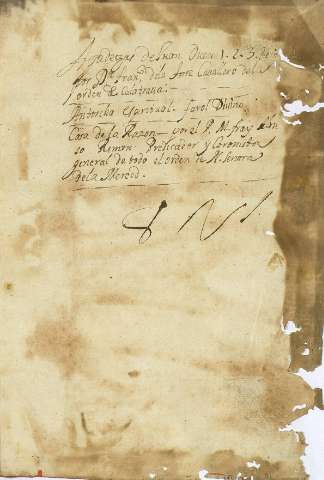 Agudezas de Juan Oven 1. 2. 3.
por Dn. franco. dela Torre Cavallero del
orden de Calatrava.
Antorcha espiritual. farol Divino.
Casa de la Razon por el P. M. fray Alon
so Remon Predicador y Coronista
general de todo el orden de N. Senora
de la Merced.